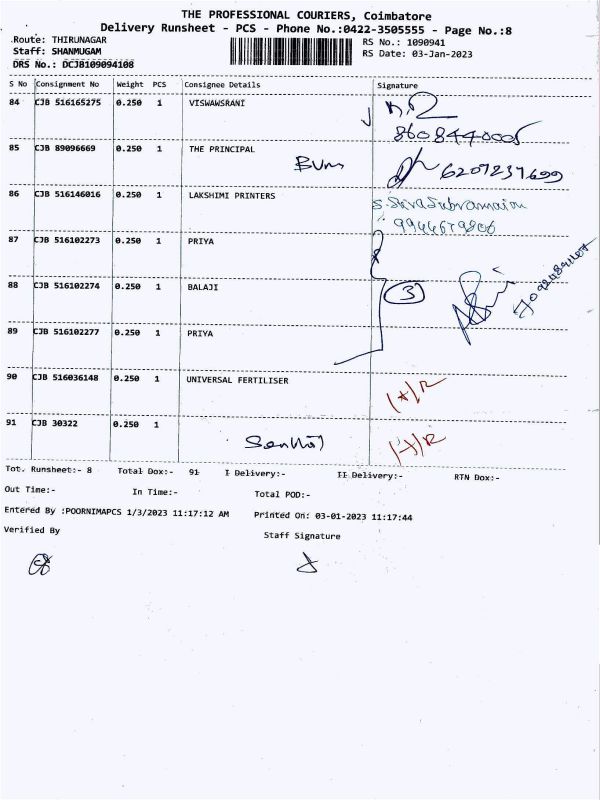 THE PROFESSIONAL COURIERS, Coimbatore
Delivery Runsheet - PCS - Phone No.:0422-3505555 - Page No.:8
Route: THIRUNAGAR
Staff: SHANMUGAM
DRS No.: DCJB109094108
RS No.: 1090941
RS Date: 03-Jan-2023
S No Consignment No Weight PCS Consignee Details Signature
84 CJB 516165275 0.250 1 VISWAWSRANI
8608440005
85 CJB 89096669 0.250 1 THE PRINCIPAL
6207237699
86 CJB 516146016 0.250 1 LAKSHIMI PRINTERS
S. Siva Subramaian
9944679806
87 CJB 516102273 0.250 1 PRIYA
88 CJB 516102274 0.250 1 BALAJI
3
89 CJB 516102277 0.250 1 PRIYA
90 CJB 516036148 0.250 1 UNIVERSAL FERTILISER
91 CJB 30322 0.250 1
Tot. Runsheet:- 8 Total Dox:- 91 I Delivery:- II Delivery:- RTN Dox:-
Out Time:- In Time:- Total POD:-
Entered By :POORNIMAPCS 1/3/2023 11:17:12 AM Printed On: 03-01-2023 11:17:44
Verified By Staff Signature